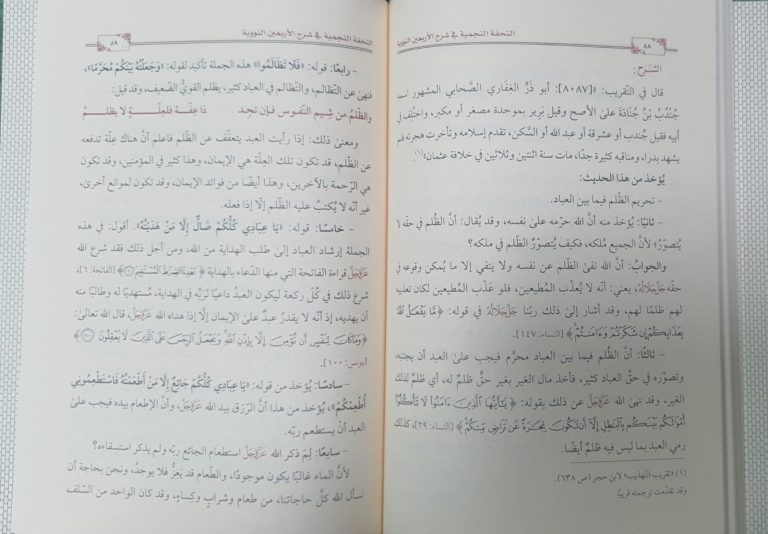 ٨٨
التحفة النجمية في شرح الأربعين النووية
الشرح:
قال في التقريب: «[٨٠٨٧]: أبو ذَرٍّ الغِفَاري الصَّحابي المشهور اسمه
جُندُبُ بنُ جُنادَةَ على الأصح وقيل بُرير بموحدة مصغر أو مكبر، واختُلف في
أبيه فقيل جُندب أو عشرقة أو عبد الله أو السَّكن، تقدم إسلامه وتأخرت هجرته فلم
يشهد بدرا، ومناقبه كثيرة جدًا، مات سنة اثنتين وثلاثين في خلافة عثمان»(١)
يُؤخذ من هذا الحديث:
– تحريم الظُّلم فيما بين العباد.
– ثانيًا: يُؤخذ منه أنَّ الله حرّمه على نفسه، وقد يُقال: أنَّ الظُّلم في حقِّه لا
يُتصوّرُ؛ لأنَّ الجميع مُلكه، فكيف يُتصوّرُ الظُّلم في ملكه؟
والجوابُ: أنَّ الله نفىٰ الظُّلم عن نفسه ولا ينفي إلا ما يُمكن وقوعه في
حقِّه جَلَّجَلَالُهُ، يعني: أنَّه لا يُعذّب المُطيعين، فلو عَذّب المُطيعين لكان تعذيبه
لهم ظلمًا لهم، وقد أشار إلىٰ ذلك ربّنا جَلَّجَلَالُهُ في قوله: ﴿مَّا يَفْعَلُ ٱللَّهُ
بِعَذَابِكُمْ إِن شَكَرْتُمْ وَءَامَنتُمْ﴾ [النساء: ١٤٧].
– ثالثًا: أنَّ الظُّلم فيما بين العباد محرّم فيجب علىٰ العبد أن يجتنبه
وتصوّره في حقِّ العباد كثير، فأخذ مال الغير بغير حقٍّ ظلمٌ له، أي ظلمٌ لذلك
الغير، وقد نهىٰ الله عَزَّوَجَلَّ عن ذلك بقوله: ﴿يَٰٓأَيُّهَا ٱلَّذِينَ ءَامَنُوا۟ لَا تَأْكُلُوٓا۟
أَمْوَٰلَكُم بَيْنَكُم بِٱلْبَٰطِلِ إِلَّآ أَن تَكُونَ تِجَٰرَةً عَن تَرَاضٍ مِّنكُمْ﴾ [النساء: ٢٩]، كذلك
رمي العبد بما ليس فيه ظلمٌ أيضًا.
(١) «تقريب التهذيب» لابن حجر (ص ٦٣٨).
وقد تقدّمت ترجمته قريبًا.
التحفة النجمية في شرح الأربعين النووية
٨٩
– رابعًا: قوله: «فَلَا تَظَالَمُوا» هذه الجملة تأكيد لقوله: «وَجَعَلْتُهُ بَيْنَكُمْ مُحَرَّمًا»،
فنهىٰ عن التّظالم، والتّظالم في العباد كثير، يظلم القويُّ الضّعيف، وقد قيل:
والظّلمُ من شِيمِ النّفوس فإن تجد ذا عفّة فلعِلّة لا يظلم
ومعنىٰ ذلك: إذا رأيت العبد يتعفّف عن الظُّلم فاعلم أنَّ هناك عِلّة تدفعه
عن الظُّلم، قد تكون تلك العِلّة هي الإيمان، وهذا كثير في المؤمنين، وقد تكون
هي الرّحمة بالآخرين، وهذا أيضًا من فوائد الإيمان، وقد تكون لموانع أخرىٰ،
غير أنَّه لا يُكتبُ عليه الظُّلم إلَّا إذا فعله.
– خامسًا: قوله: «يَا عِبَادِي كُلُّكُمْ ضَالٌّ إِلَّا مَنْ هَدَيْتُهُ». أقول: في هذه
الجملة إرشاد العباد إلىٰ طلب الهداية من الله، ومن أجل ذلك فقد شرع الله
عَزَّوَجَلَّ قراءة الفاتحة التي منها الدّعاء بالهداية ﴿ٱهْدِنَا ٱلصِّرَٰطَ ٱلْمُسْتَقِيمَ ۝﴾ [الفاتحة: ٦]،
شرع ذلك في كُلِّ ركعة ليكون العبدُ داعيًا لرَبِّه في الهداية، مُستهديًا له وطالبًا منه
أن يهديه، إذ أنَّه لا يقدرُ عبدٌ علىٰ الإيمان إلَّا إذا هداه الله عَزَّوَجَلَّ، قال الله تعالىٰ:
﴿وَمَا كَانَ لِنَفْسٍ أَن تُؤْمِنَ إِلَّا بِإِذْنِ ٱللَّهِ وَيَجْعَلُ ٱلرِّجْسَ عَلَى ٱلَّذِينَ لَا يَعْقِلُونَ ۝﴾
[يونس: ١٠٠].
– سادسًا: يُؤخذ من قوله: «يَا عِبَادِي كُلُّكُمْ جَائِعٌ إِلَّا مَنْ أَطْعَمْتُهُ فَاسْتَطْعِمُونِي
أُطْعِمْكُمْ»، يُؤخذ من هذا أنَّ الرّزق بيد الله عَزَّوَجَلَّ، وأنَّ الإطعام بيده فيجب علىٰ
العبد أنْ يستطعم ربّه.
– سابعًا: لِمَ ذكر الله عَزَّوَجَلَّ استطعام الجائع ربّه ولم يذكر استسقاءه؟
لأنَّ الماء غالبًا يكون موجودًا، والطّعام قد يَعِزُّ فلا يوجدُ، ونحن بحاجة أن
نسأل الله كلَّ حاجاتنا، من طعام وشراب وكِساءٍ، وقد كان الواحد من السّلف